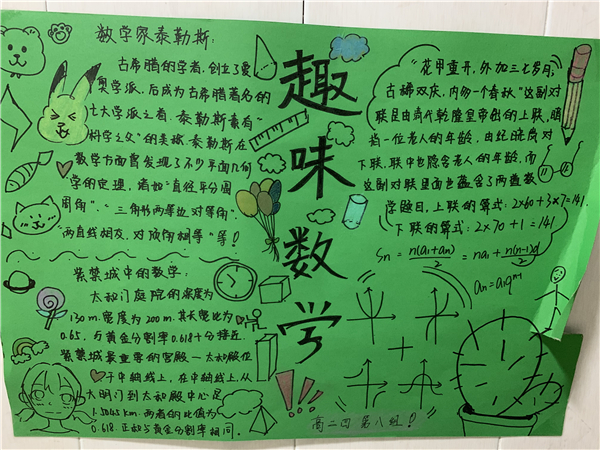 数学家泰勒斯:
古希腊的学者,创立了爱
奥学派,后成为古希腊著名的
七大学派之首.泰勒斯素有
"科学之父"的美称.泰勒斯在
数学方面曾发现了不少平面几何
学的定理,诸如"直径平分圆
周角"."三角形两等边对等角".
"两直线相交,对顶角相等"等!
紫禁城中的数学:
太和门庭院的深度为
130m.宽度为200m.其长宽比为
0.65.与黄金分割率0.618十分接近.
紫禁城最重要的宫殿—太和殿位
于中轴线上,在中轴线上,从
大明门到太和殿中心是
1.5045km.两者的比值为
0.618.正好与黄金分割率相同.
趣味数学
"花甲重开,外加三七岁月;
古稀双庆,内多一个春秋."这副对
联是由清代乾隆皇帝出的上联,暗
指一位老人的年龄,由纪晓岚对
下联,联中也隐含老人的年龄,而
这副对联里面也蕴含了两道数
学题目,上联的算式:2×60+3×7=141.
下联的算式:2×70+1=141
Sn=n(a1+an)/2=na1+n(n-1)d/2
an=a1q^n-1
高二四 第八组!